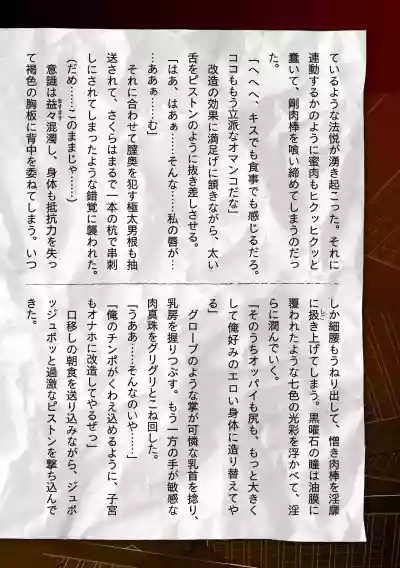 ているような法悦が湧き起こった。それに
連動するかのように蜜肉もヒクッヒクッと
蠢いて、剛肉棒を喰い締めてしまうのだっ
た。
「へへへ、キスでも食事でも感じるだろ。
ココももう立派なオマンコだな」
改造の効果に満足げに頷きながら、太い
舌をピストンのように抜き差しさせる。
「はあ、はあぁ……そんな……私の唇が…
…ああぁ……む」
それに合わせて膣奥を犯す極太男根も抽
送されて、さくらはまるで一本の杭で串刺
しにされてしまったような錯覚に襲われた。
(だめ……このままじゃ……)
意識は益々混濁し、身体も抵抗力を失っ
て褐色の胸板に背中を委ねてしまう。いつ
しか細腰もうねり出して、憎き肉棒を淫靡
に扱き上げてしまう。黒曜石の瞳は油膜に
覆われたような七色の光彩を浮かべて、淫
らに潤んでいく。
「そのうちオッパイも尻も、もっと大きく
して俺好みのエロい身体に造り替えてや
る」
グローブのような掌が可憐な乳首を捻り、
乳房を握りつぶす。もう一方の手が敏感な
肉真珠をグリグリとこね回した。
「うああ……そんなのいや……」
「俺のチンポがくわえ込めるように、子宮
もオナホに改造してやるぜっ」
口移しの朝食を送り込みながら、ジュボ
ッジュボッと過激なピストンを撃ち込んで
きた。